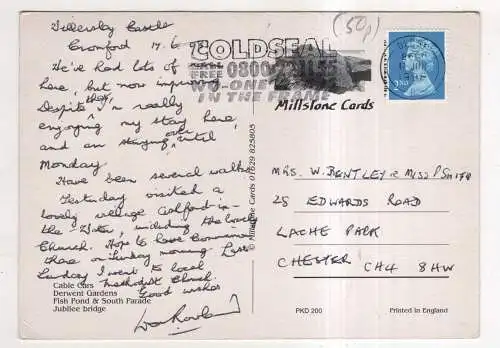 Willersley Castle
Cromford 17.6.
We've had lots of
here, but now improving.
Despite this, I'm really
enjoying my stay here,
and am staying over until
Monday
Have been several walks
Yesterday visited a
lovely village Ashford-in
the-Water, including the lovely
Church. Hope to have Communion
there on Sunday morning. Last
Sunday I went to local
Methodist Church.
Good wishes
Cable Cars
Derwent Gardens
Fish Pond & South Parade
Jubilee bridge
© Millstone Cards 01629 825805
(50p)
COLDSEAL
FREE 0800
NO-ONE
IN THE FRAME
Millstone Cards
2ND
MRS. W. BENTLEY & MISS P SMITH
25 EDWARDS ROAD
LACHE PARK
CHESTER CH4 8HW
PKD 200
Printed in England